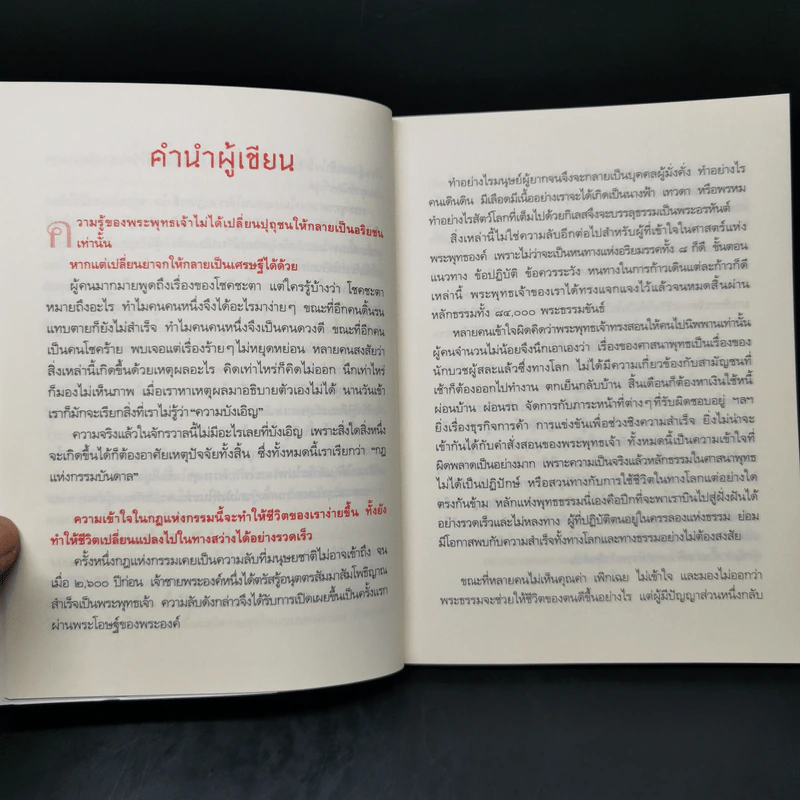 คำนำผู้เขียน
ความรู้ของพระพุทธเจ้าไม่ได้เปลี่ยนปุถุชนให้กลายเป็นอริยชน
เท่านั้น
หากแต่เปลี่ยนยาจกให้กลายเป็นเศรษฐีได้ด้วย
ผู้คนมากมายพูดถึงเรื่องของโชคชะตา แต่ใครรู้บ้างว่า โชคชะตา
หมายถึงอะไร ทำไมคนคนหนึ่งจึงได้อะไรมาง่ายๆ ขณะที่อีกคนดิ้นรน
แทบตายก็ยังไม่สำเร็จ ทำไมคนคนหนึ่งจึงเป็นคนดวงดี ขณะที่อีกคน
เป็นคนโชคร้าย พบเจอแต่เรื่องร้ายๆ ไม่หยุดหย่อน หลายคนสงสัยว่า
สิ่งเหล่านี้เกิดขึ้นด้วยเหตุผลอะไร คิดเท่าไหร่ก็คิดไม่ออก นึกเท่าไหร่
ก็มองไม่เห็นภาพ เมื่อเราหาเหตุผลมาอธิบายตัวเองไม่ได้ นานวันเข้า
เราก็มักจะเรียกสิ่งที่เราไม่รู้ว่า “ความบังเอิญ”
ความจริงแล้วในจักรวาลนี้ไม่มีอะไรเลยที่บังเอิญ เพราะสิ่งใดสิ่งหนึ่ง
จะเกิดขึ้นได้ก็ต้องอาศัยเหตุปัจจัยทั้งสิ้น ซึ่งทั้งหมดนี้เราเรียกว่า “กฎ
แห่งกรรมบันดาล”
ความเข้าใจในกฎแห่งกรรมนี้จะทำให้ชีวิตของเราง่ายขึ้น ทั้งยัง
ทำให้ชีวิตเปลี่ยนแปลงไปในทางสว่างได้อย่างรวดเร็ว
ครั้งหนึ่งกฎแห่งกรรมเคยเป็นความลับที่มนุษยชาติไม่อาจเข้าถึง จน
เมื่อ ๒,๖๐๐ ปีก่อน เจ้าชายพระองค์หนึ่งได้ตรัสรู้อนุตตรสัมมาสัมโพธิญาณ
สำเร็จเป็นพระพุทธเจ้า ความลับดังกล่าวจึงได้รับการเปิดเผยขึ้นเป็นครั้งแรก
ผ่านพระโอษฐ์ของพระองค์
ทำอย่างไรมนุษย์ผู้ยากจนจึงจะกลายเป็นบุคคลผู้มั่งคั่ง ทำอย่างไร
คนเดินดิน มีเลือดมีเนื้ออย่างเราจะได้เกิดเป็นนางฟ้า เทวดา หรือพรหม
ทำอย่างไรสัตว์โลกที่เต็มไปด้วยกิเลสจึงจะบรรลุธรรมเป็นพระอรหันต์
สิ่งเหล่านี้ไม่ใช่ความลับอีกต่อไปสำหรับผู้ที่เข้าใจในศาสตร์แห่ง
พระพุทธองค์ เพราะไม่ว่าจะเป็นหนทางแห่งอริยมรรคทั้ง ๘ ก็ดี ขั้นตอน
แนวทาง ข้อปฏิบัติ ข้อควรระวัง หนทางในการก้าวเดินแต่ละก้าวก็ดี
เหล่านี้ พระพุทธเจ้าของเราได้ทรงแจกแจงไว้แล้วจนหมดสิ้นผ่าน
หลักธรรมทั้ง ๘๔,๐๐๐ พระธรรมขันธ์
หลายคนเข้าใจผิดคิดว่าพระพุทธเจ้าทรงสอนให้คนไปนิพพานเท่านั้น
ผู้คนจำนวนไม่น้อยจึงนึกเอาเองว่า เรื่องของศาสนาพุทธเป็นเรื่องของ
นักบวชผู้สละแล้วซึ่งทางโลก ไม่ได้มีความเกี่ยวข้องกับสามัญชนที่
เช้าก็ต้องออกไปทำงาน ตกเย็นกลับบ้าน สิ้นเดือนก็ต้องหาเงินใช้หนี้
ผ่อนบ้าน ผ่อนรถ จัดการกับภาระหน้าที่ต่างๆ ที่รับผิดชอบอยู่ ฯลฯ
ยิ่งเรื่องธุรกิจการค้า การแข่งขันเพื่อช่วงชิงความสำเร็จ ยิ่งไม่น่าจะ
เข้ากันได้กับคำสั่งสอนของพระพุทธเจ้า ทั้งหมดนี้เป็นความเข้าใจที่
ผิดพลาดเป็นอย่างมาก เพราะความเป็นจริงแล้วหลักธรรมในศาสนาพุทธ
ไม่ได้เป็นปฏิปักษ์ หรือสวนทางกับการใช้ชีวิตในทางโลกแต่อย่างใด
ตรงกันข้าม หลักแห่งพุทธธรรมนี่เองคือปีกที่จะพาเราบินไปสู่ฝั่งฝันได้
อย่างรวดเร็วและไม่หลงทาง ผู้ที่ปฏิบัติตนอยู่ในครรลองแห่งธรรม ย่อม
มีโอกาสพบกับความสำเร็จทั้งทางโลกและทางธรรมอย่างไม่ต้องสงสัย
ขณะที่หลายคนไม่เห็นคุณค่า เพิกเฉย ไม่เข้าใจ และมองไม่ออกว่า
พระธรรมจะช่วยให้ชีวิตของตนดีขึ้นอย่างไร แต่ผู้มีปัญญาส่วนหนึ่งกลับ